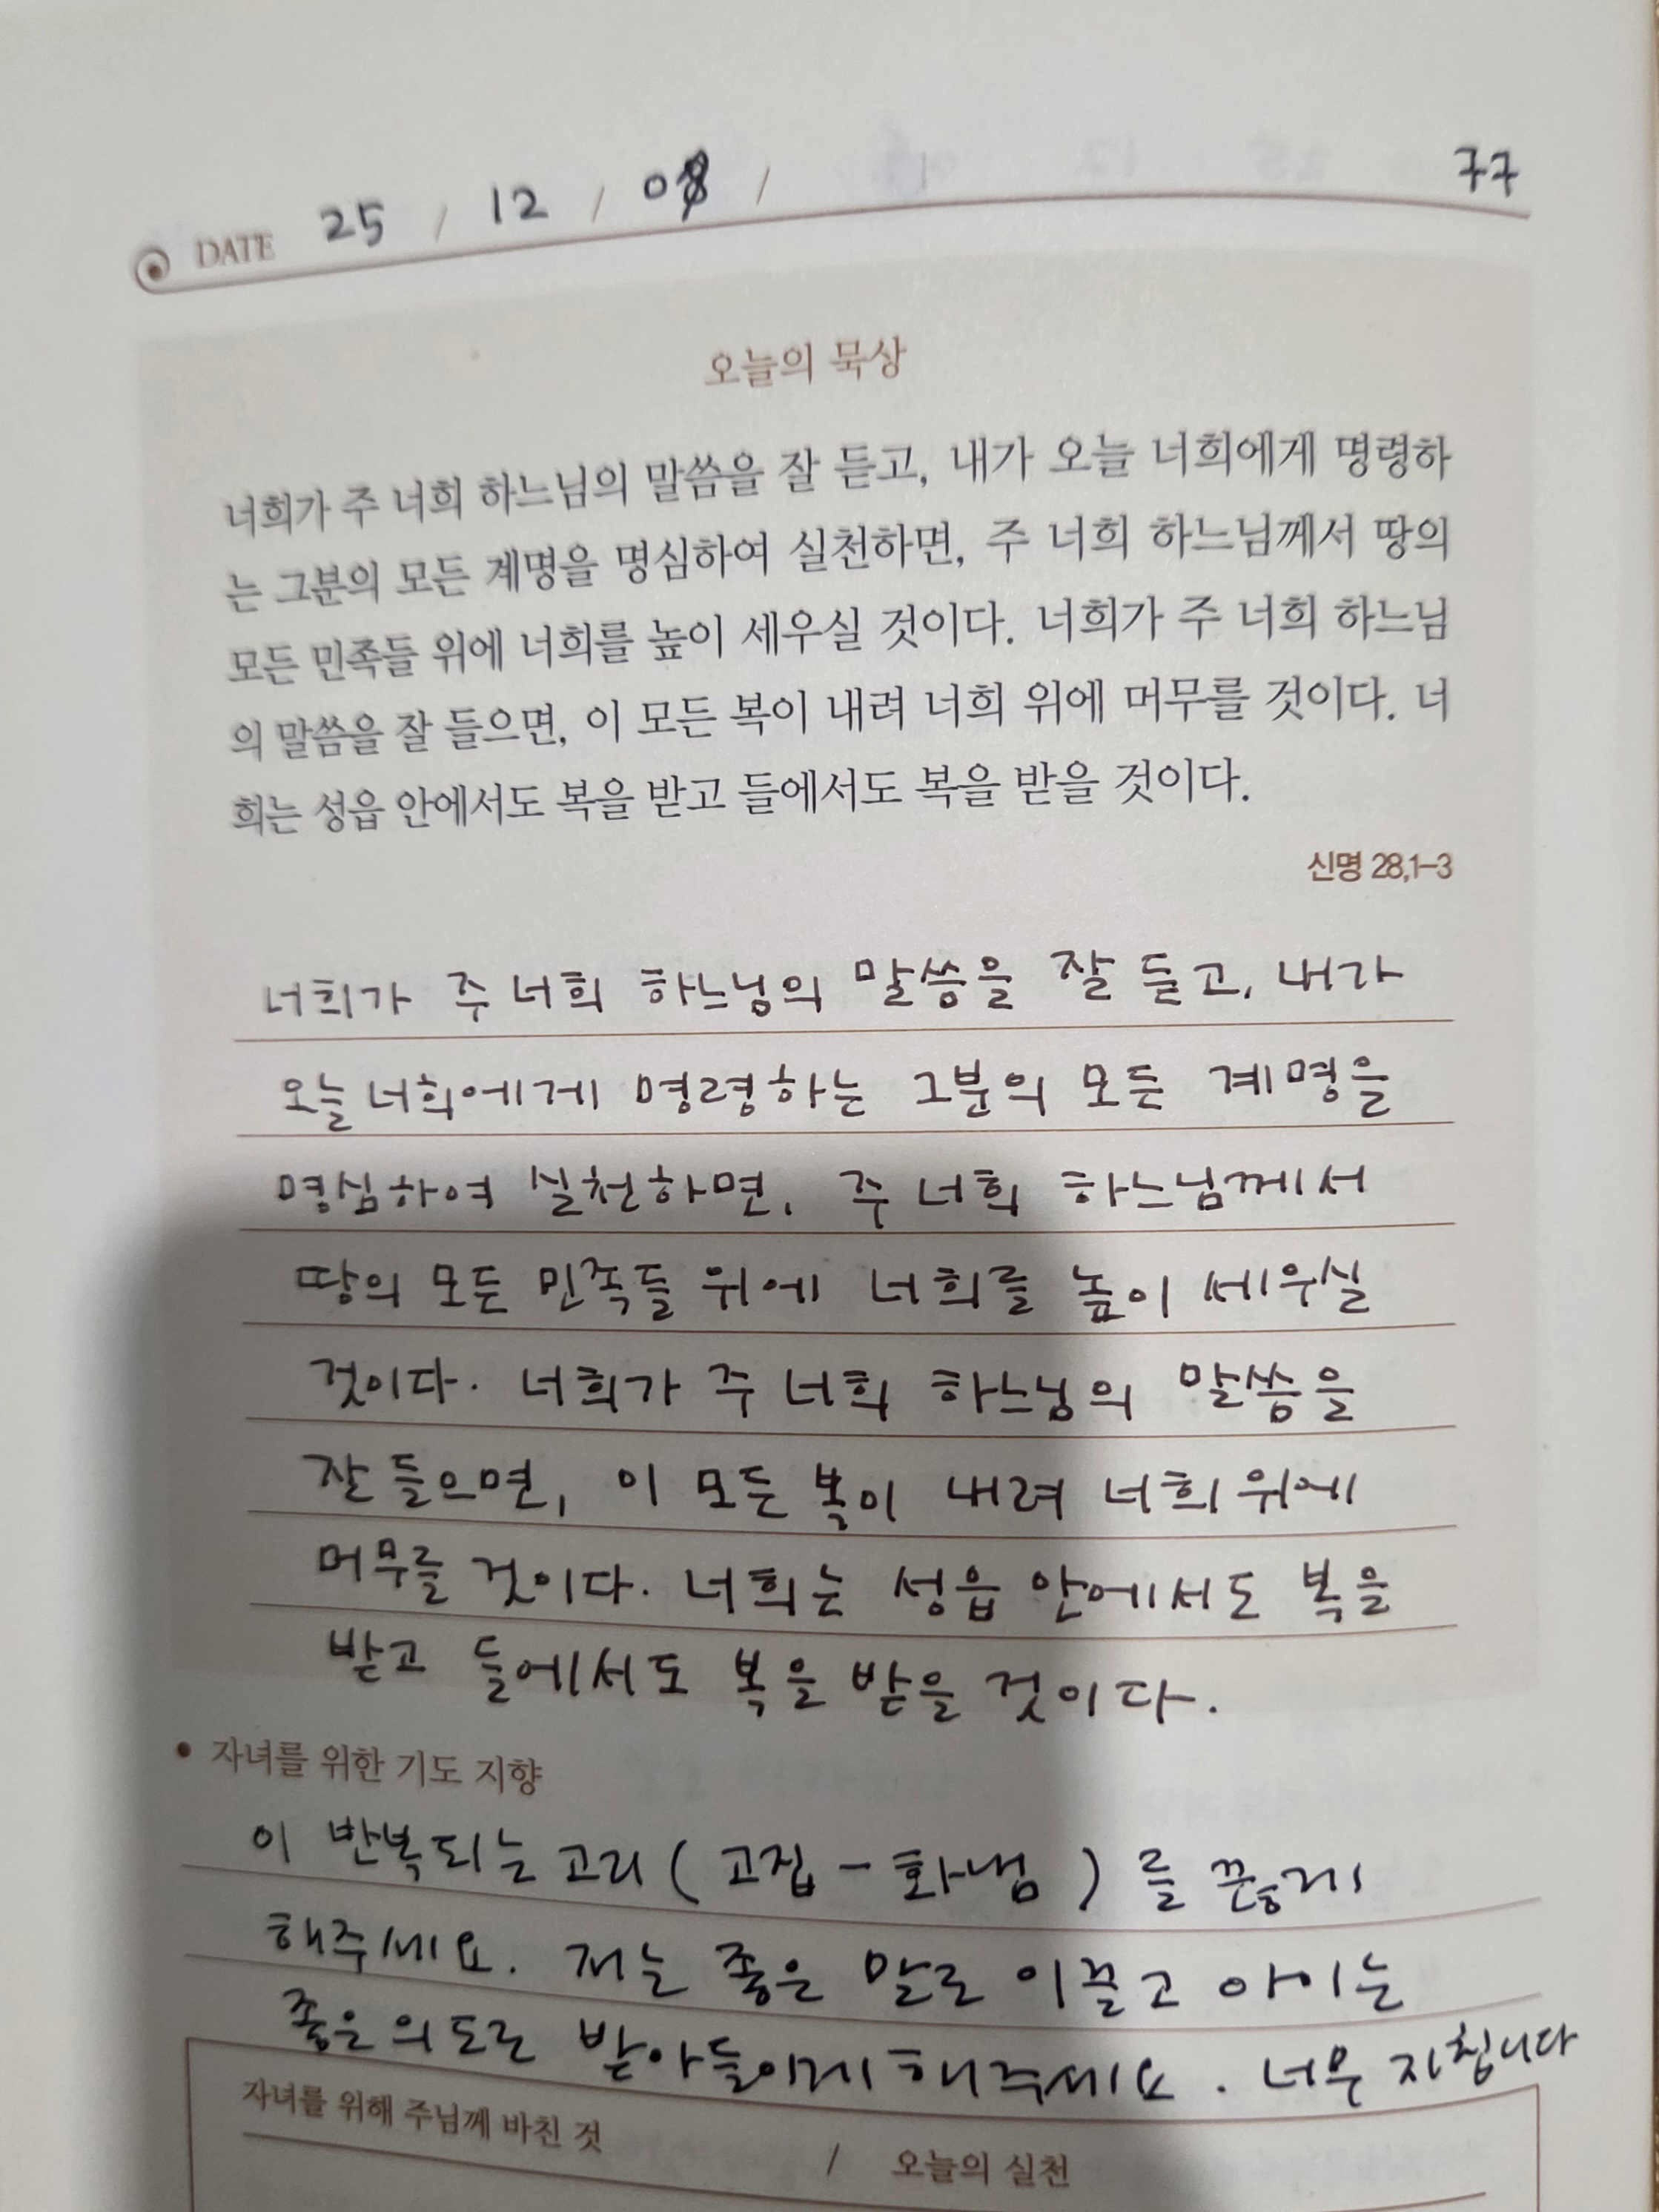 77
DATE 25 / 12 / 08 /
오늘의 묵상
너희가 주 너희 하느님의 말씀을 잘 듣고, 내가 오늘 너희에게 명령하
는 그분의 모든 계명을 명심하여 실천하면, 주 너희 하느님께서 땅의
모든 민족들 위에 너희를 높이 세우실 것이다. 너희가 주 너희 하느님
의 말씀을 잘 들으면, 이 모든 복이 내려 너희 위에 머무를 것이다. 너
희는 성읍 안에서도 복을 받고 들에서도 복을 받을 것이다.
신명 28,1-3
너희가 주 너희 하느님의 말씀을 잘 듣고, 내가
오늘 너희에게 명령하는 그분의 모든 계명을
명심하여 실천하면, 주 너희 하느님께서
땅의 모든 민족들 위에 너희를 높이 세우실
것이다. 너희가 주 너희 하느님의 말씀을
잘 들으면, 이 모든 복이 내려 너희 위에
머무를 것이다. 너희는 성읍 안에서도 복을
받고 들에서도 복을 받을 것이다.
• 자녀를 위한 기도 지향
이 반복되는 고리 ( 고집 - 화냄 ) 를 끊게
해주세요. 저는 좋은 말로 이끌고 아이는
좋은 의도로 받아들이게 해주세요. 너무 지칩니다
자녀를 위해 주님께 바친 것 / 오늘의 실천